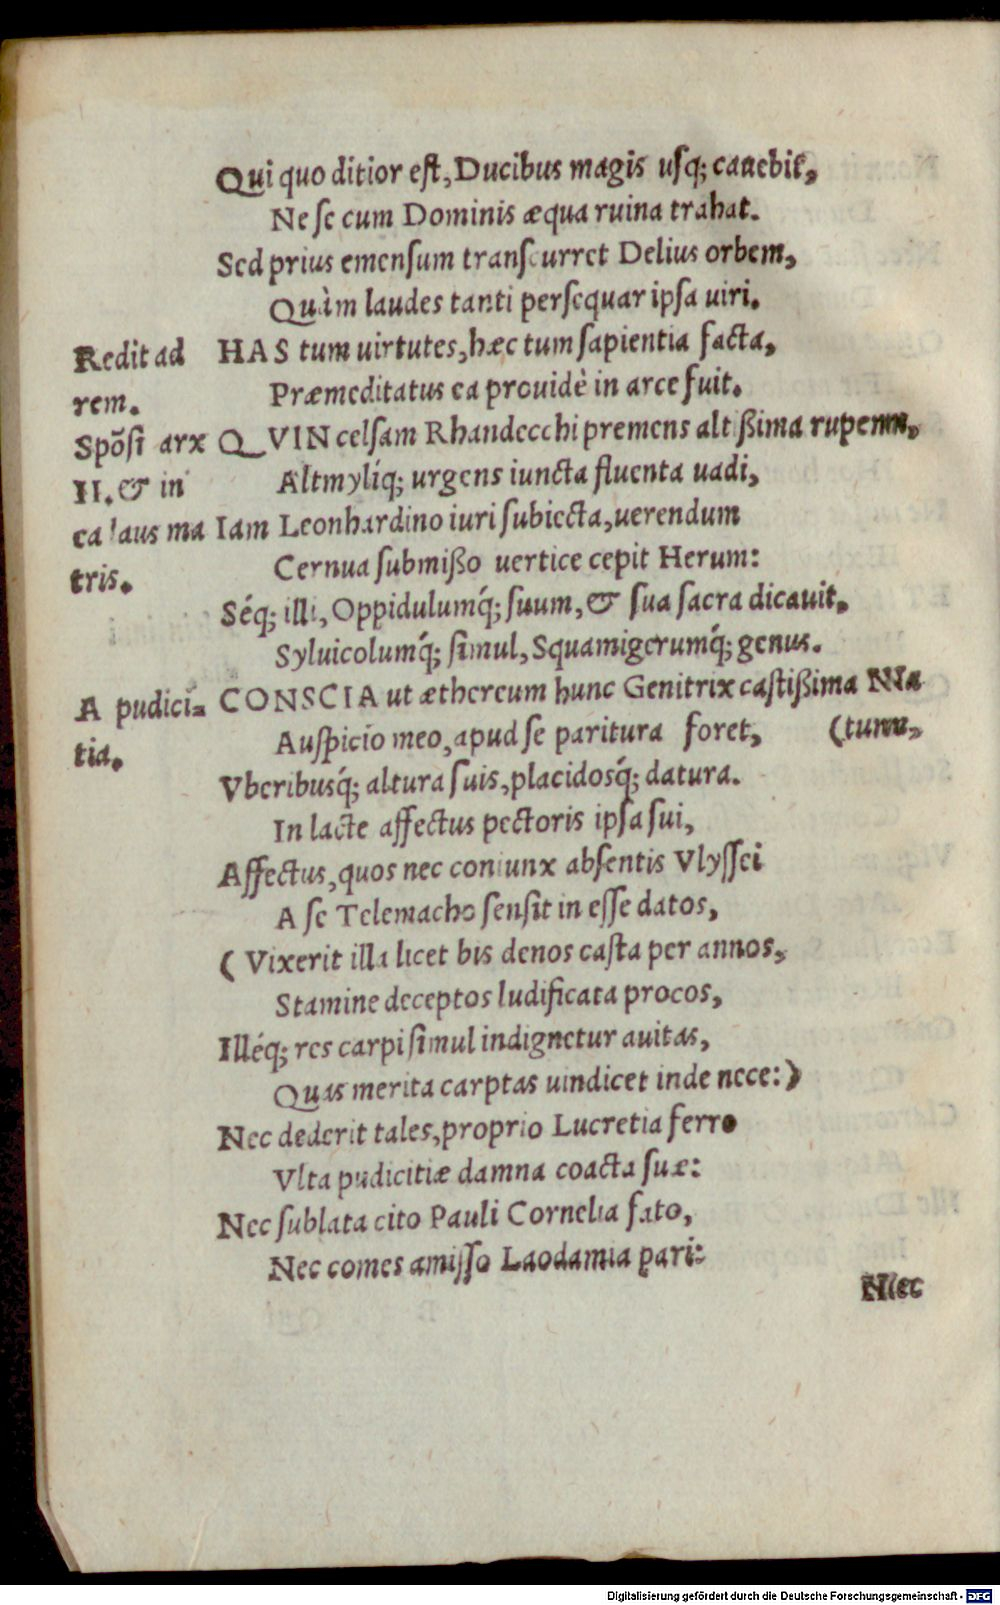 Qui quo ditior eſt, Ducibus magis uſq; cauebit,
Ne ſe cum Dominis æqua ruina trahat.
Sed prius emenſum tranſcurret Delius orbem,
Quàm laudes tanti perſequar ipſa uiri.
Redit ad
rem.
HAS tum uirtutes, hæc tum ſapientia facta,
Præmeditatus ea prouidè in arce fuit.
Spõſi arx
II. & in
ea laus ma
tris.
QVIN celſam Rhandecchi premens altißima rupem,
Altmylíq; urgens iuncta fluenta uadi,
Iam Leonhardino iuri ſubiecta, uerendum
Cernua ſubmißo uertice cepit Herum:
Séq; illi, Oppidulumq́; ſuum, & ſua ſacra dicauit,
Syluicolumq́; ſimul, Squamigerumq́; genus.
A pudici=
tia.
CONSCIA ut æthereum hunc Genitrix caſtißima Na
(tum,
Auſpicio meo, apud ſe paritura foret,
Vberibusq́; altura ſuis, placidosq́; datura.
In lacte affectus pectoris ipſa ſui,
Affectus, quos nec coniunx abſentis Vlyſſei
A ſe Telemacho ſenſit in eſſe datos,
(Vixerit illa licet bis denos caſta per annos,
Stamine deceptos ludificata procos,
Illéq; res carpi ſimul indignetur auitas,
Quas merita carptas uindicet inde nece:)
Nec dederit tales, proprio Lucretia ferro
Vlta pudicitiæ damna coacta ſuæ:
Nec ſublata cito Pauli Cornelia fato,
Nec comes amiſſo Laodamia pari:
Nec
Digitalisierung gefördert durch die Deutsche Forschungsgemeinschaft - DFG